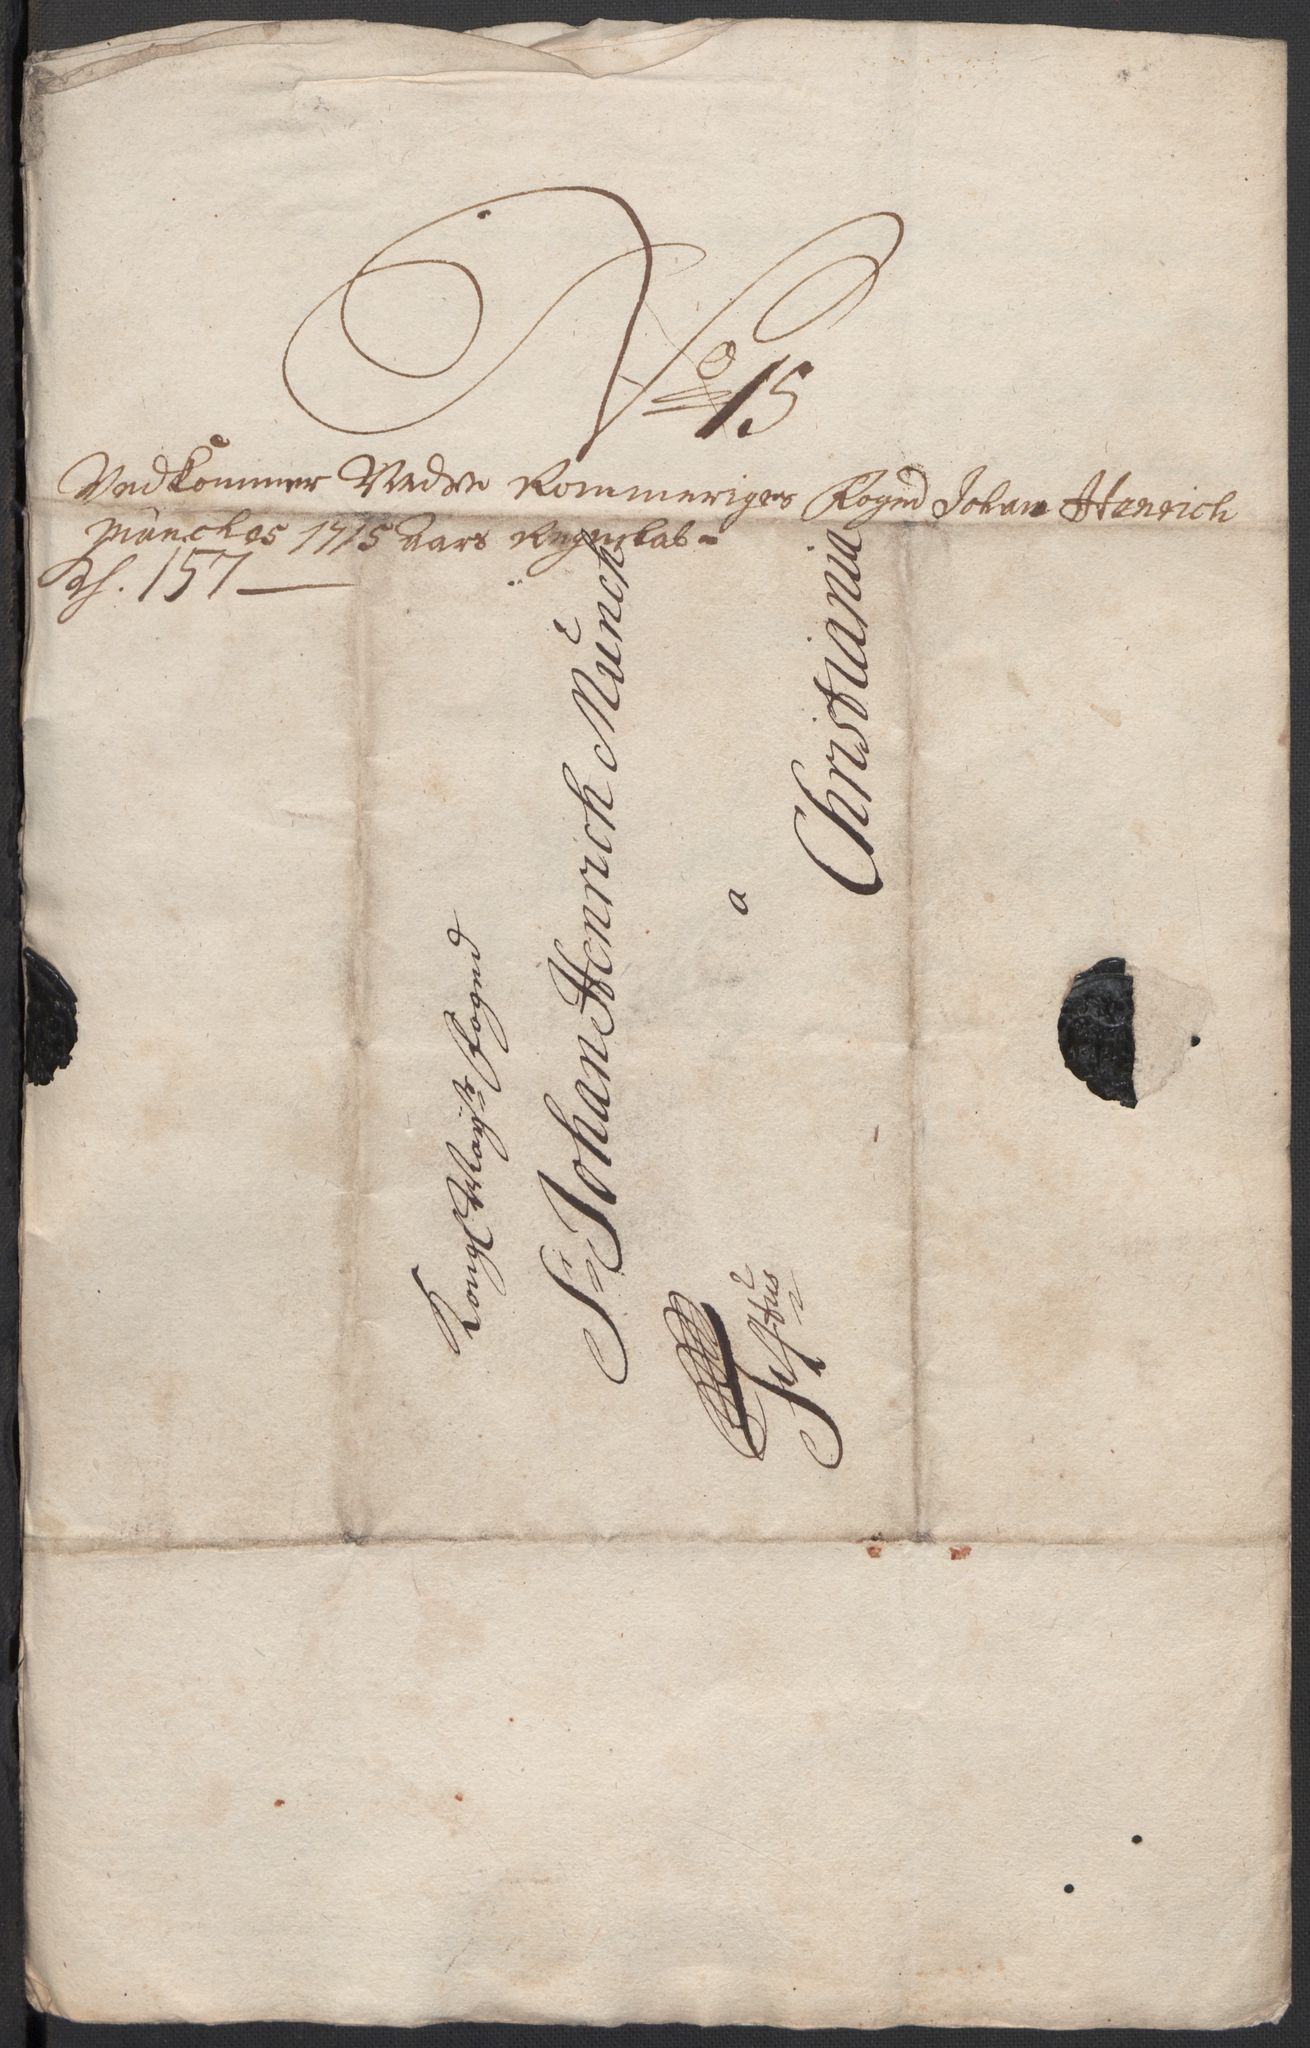 No 15
Vedkommer Nedre Rommeriges Foged Johan Henrich
Münches 1715 Aars Regenskab
157
Kongl Mayts Fogud
Sr Johan Henrich Münck
a
Christiania